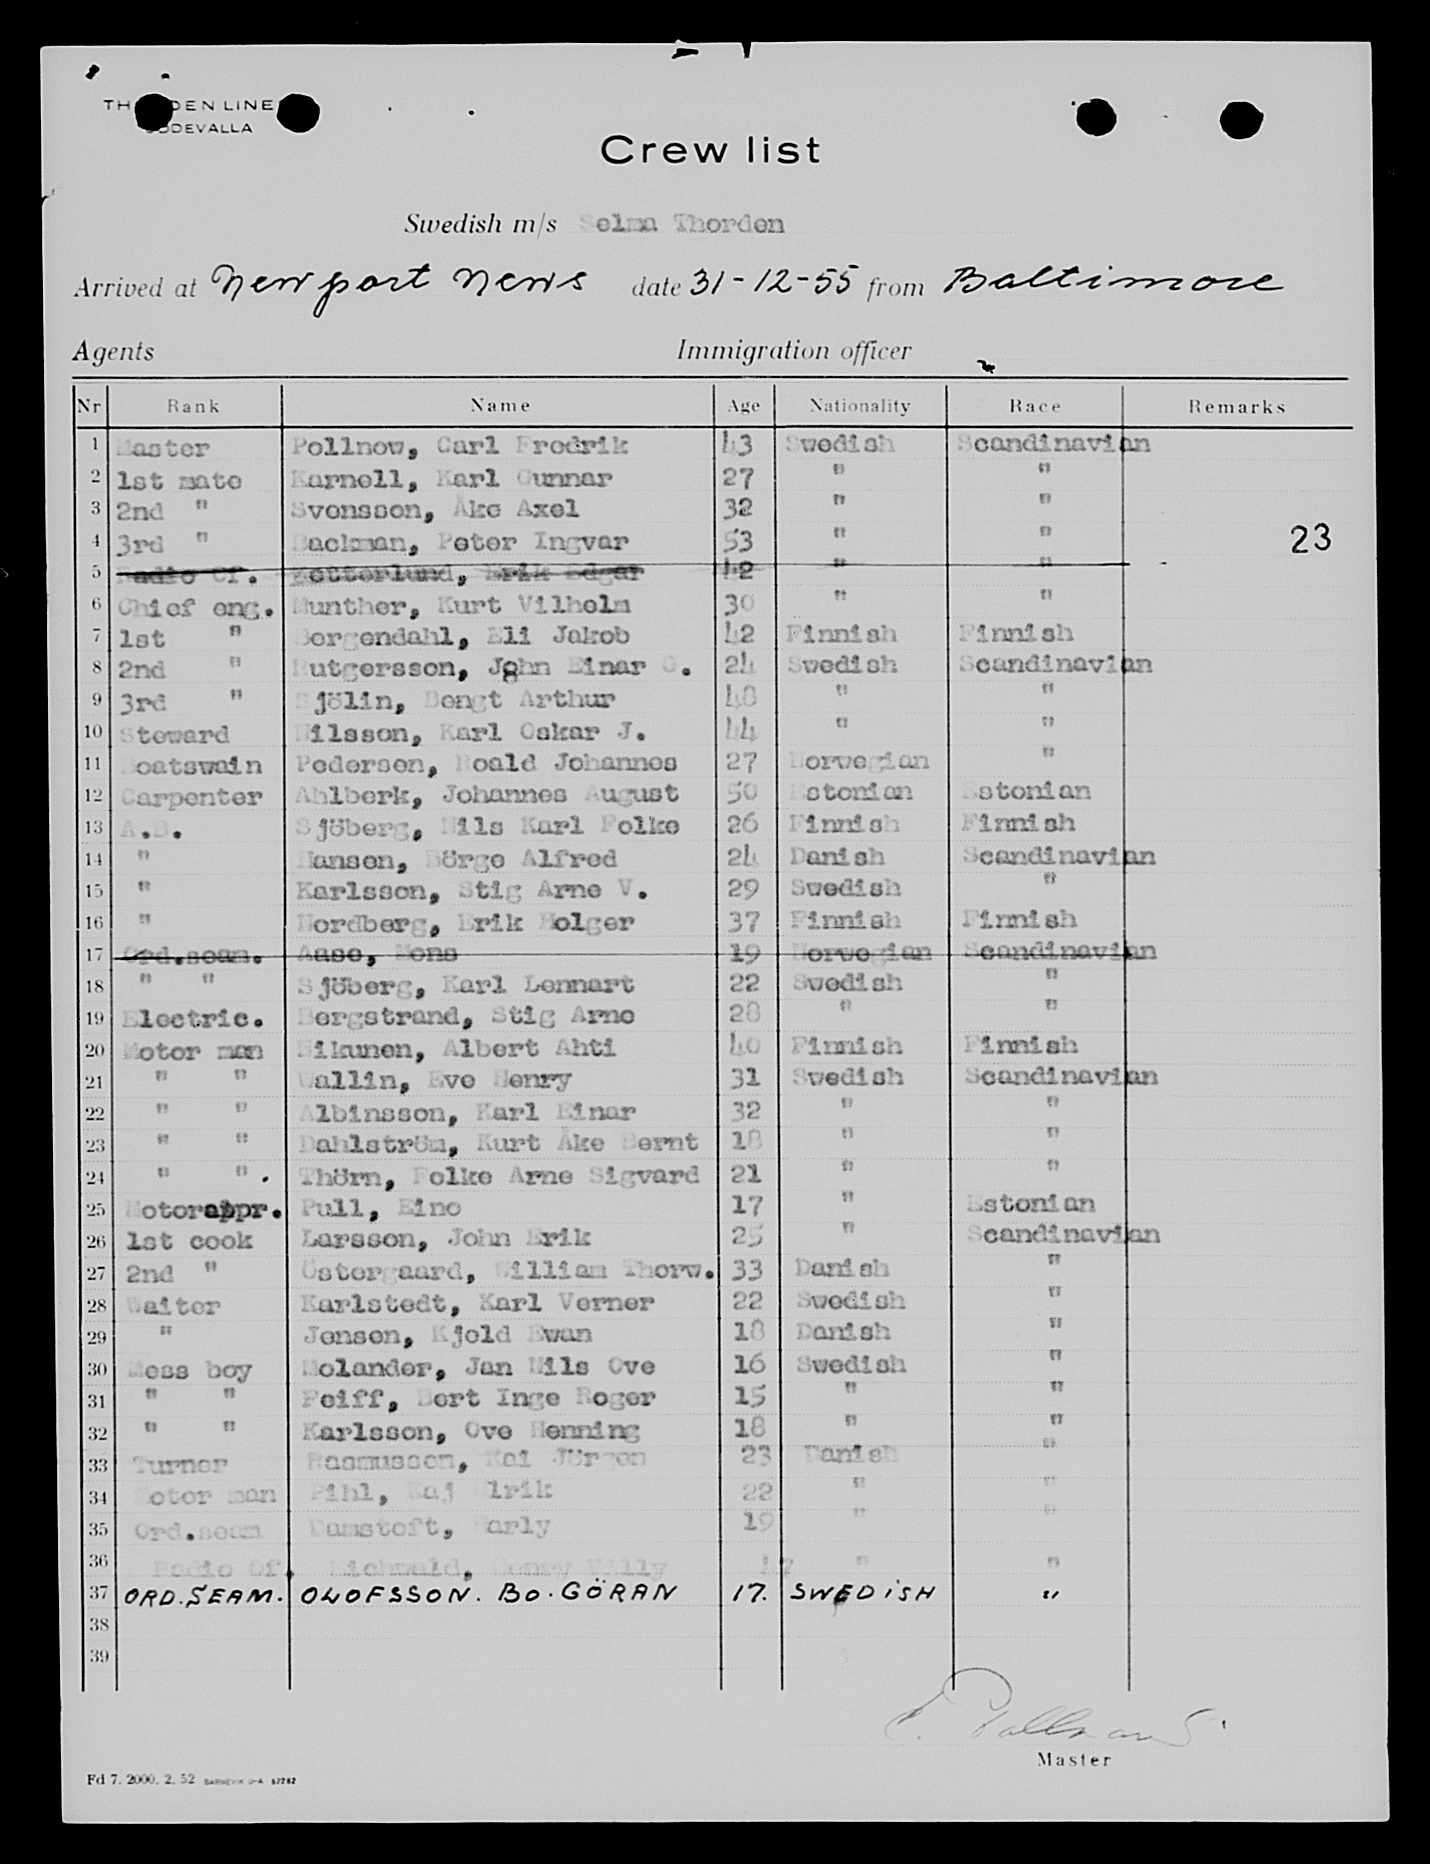 THORDEN LINES
UDDEVALLA
Crew list
Swedish m/s Selma Thorden
Arrived at Newport News date 31-12-55 from Baltimore
Agents Immigration officer
Nr Rank Name Age Nationality Race Remarks
1 Master Pollnow, Carl Fredrik 43 Swedish Scandinavian
2 1st mate Karnell, Karl Gunnar 27 " "
3 2nd " Svensson, Åke Axel 32 " "
4 3rd " Backman, Peter Ingvar 53 " " 23
5 Radio Of. Zetterlund, Erik Edgar 42 " "
6 Chief eng. Munther, Kurt Vilhelm 30 " "
7 1st " Bergendahl, Eli Jakob 42 Finnish Finnish
8 2nd " Rutgersson, John Einar G. 24 Swedish Scandinavian
9 3rd " Sjölin, Bengt Arthur 48 " "
10 Steward Nilsson, Karl Oskar J. 44 " "
11 Boatswain Pedersen, Roald Johannes 27 Norwegian "
12 Carpenter Ahlberk, Johannes August 50 Estonian Estonian
13 A.B. Sjöberg, Nils Karl Folke 26 Finnish Finnish
14 " Hansen, Börge Alfred 24 Danish Scandinavian
15 " Karlsson, Stig Arne V. 29 Swedish "
16 " Nordberg, Erik Holger 37 Finnish Finnish
17 Ord.seam. Aase, Mons 19 Norwegian Scandinavian
18 " " Sjöberg, Karl Lennart 22 Swedish "
19 Electric. Bergstrand, Stig Arne 28 " "
20 Motor man Nikunen, Albert Ahti 40 Finnish Finnish
21 " " Wallin, Eve Henry 31 Swedish Scandinavian
22 " " Albinsson, Karl Einar 32 " "
23 " " Dahlström, Kurt Åke Bernt 18 " "
24 " ". Thörn, Folke Arne Sigvard 21 " "
25 Motorappr. Pull, Eino 17 " Estonian
26 1st cook Larsson, John Erik 25 " Scandinavian
27 2nd " Östergaard, William Thorw. 33 Danish "
28 Waiter Karlstedt, Karl Verner 22 Swedish "
29 " Jensen, Kjeld Ewan 18 Danish "
30 Mess boy Molander, Jan Nils Ove 16 Swedish "
31 " " Feiff, Bert Inge Roger 15 " "
32 " " Karlsson, Ove Henning 18 " "
33 Turner Rasmussen, Kai Jörgen 23 Danish "
34 Motor man Pihl, Kaj Ulrik 22 " "
35 Ord.seam Damstoft, Harly 19 " "
36 Radio Of. Eichwald, Conny Willy 47 " "
37 ORD.SEAM. OLOFSSON. BO.GÖRAN 17. SWEDISH "
38
39
Master
Fd 7. 2000. 2. 52